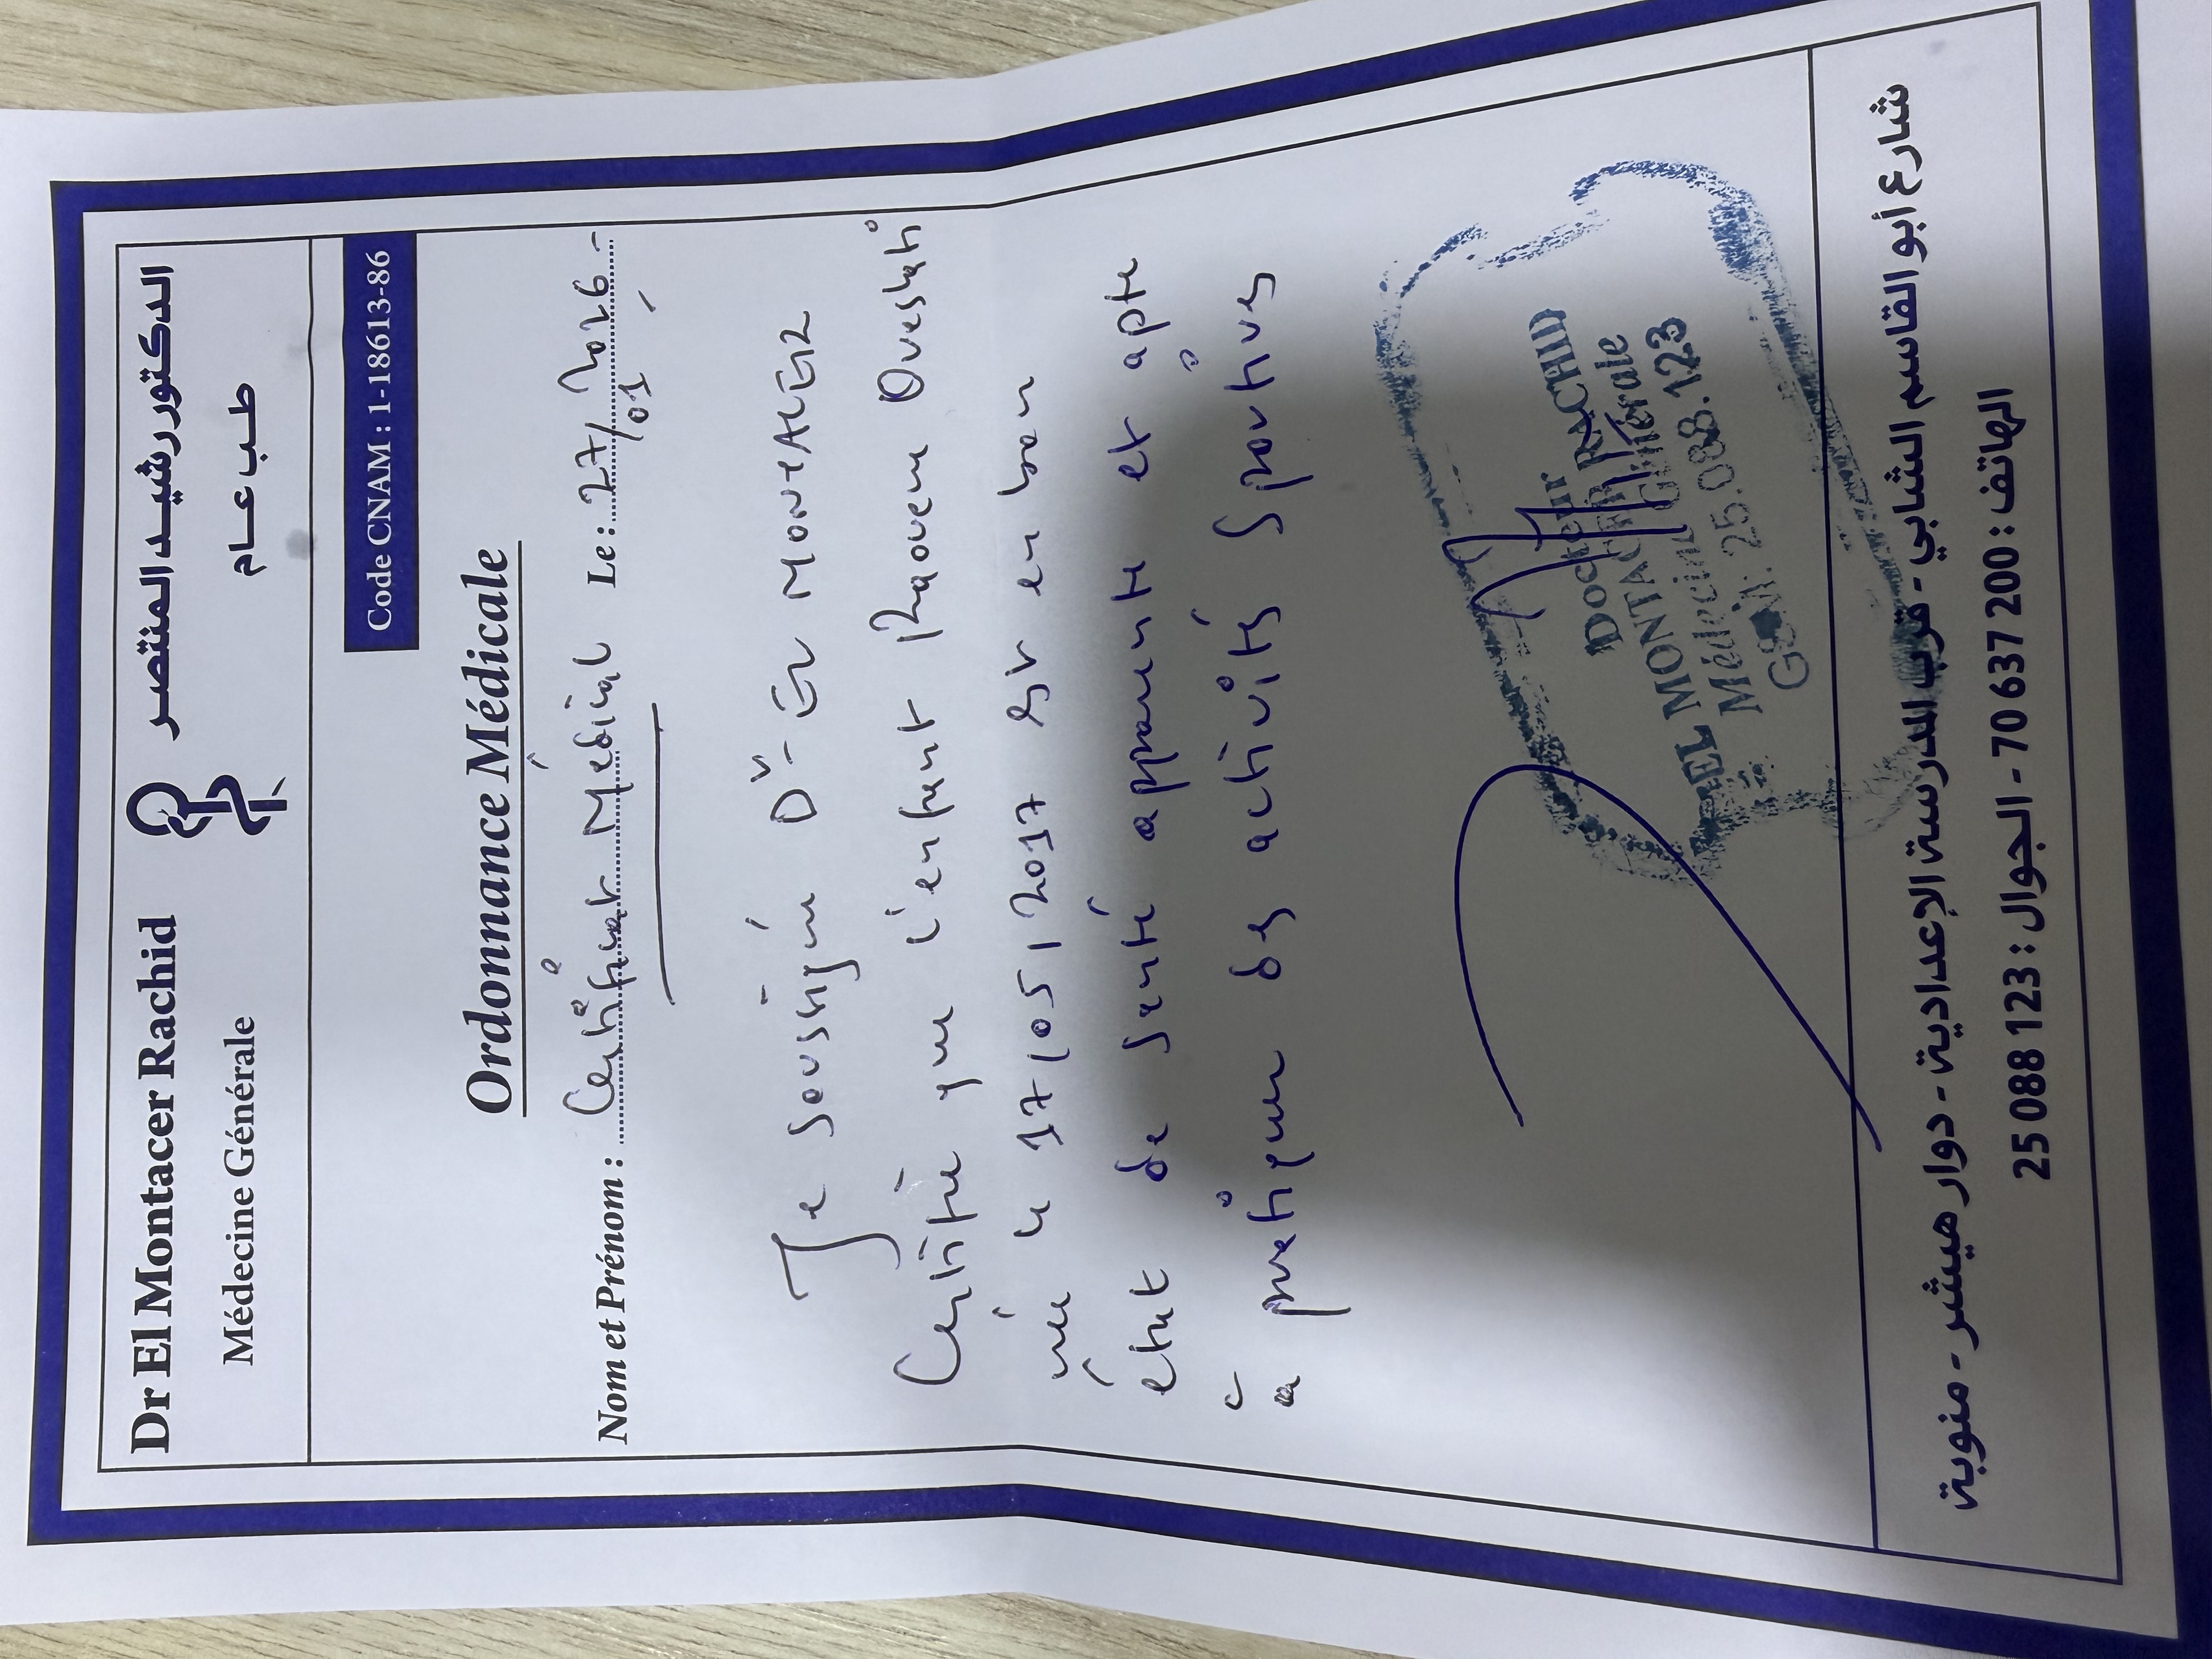 Dr El Montacer Rachid
Médecine Générale
الدكتور رشيد المنتصر
طب عام
Code CNAM : 1-18613-86
Ordonnance Médicale
Nom et Prénom : Certificat Médical Le : 27/01/2026
Je soussigné Dr EL MONTACER
Certifie que l'enfant Raouen Oueslati
née le 17/05/2017 est en bon
état de santé apparente et apte
à pratiquer des activités sportives
Docteur
EL MONTACER RACHID
Médecine Générale
GSM: 25.088.123
شارع أبو القاسم الشابي - قرب المدرسة الإعدادية - دوار هيشر - منوبة
الهاتف : 200 637 70 - الجوال : 123 088 25